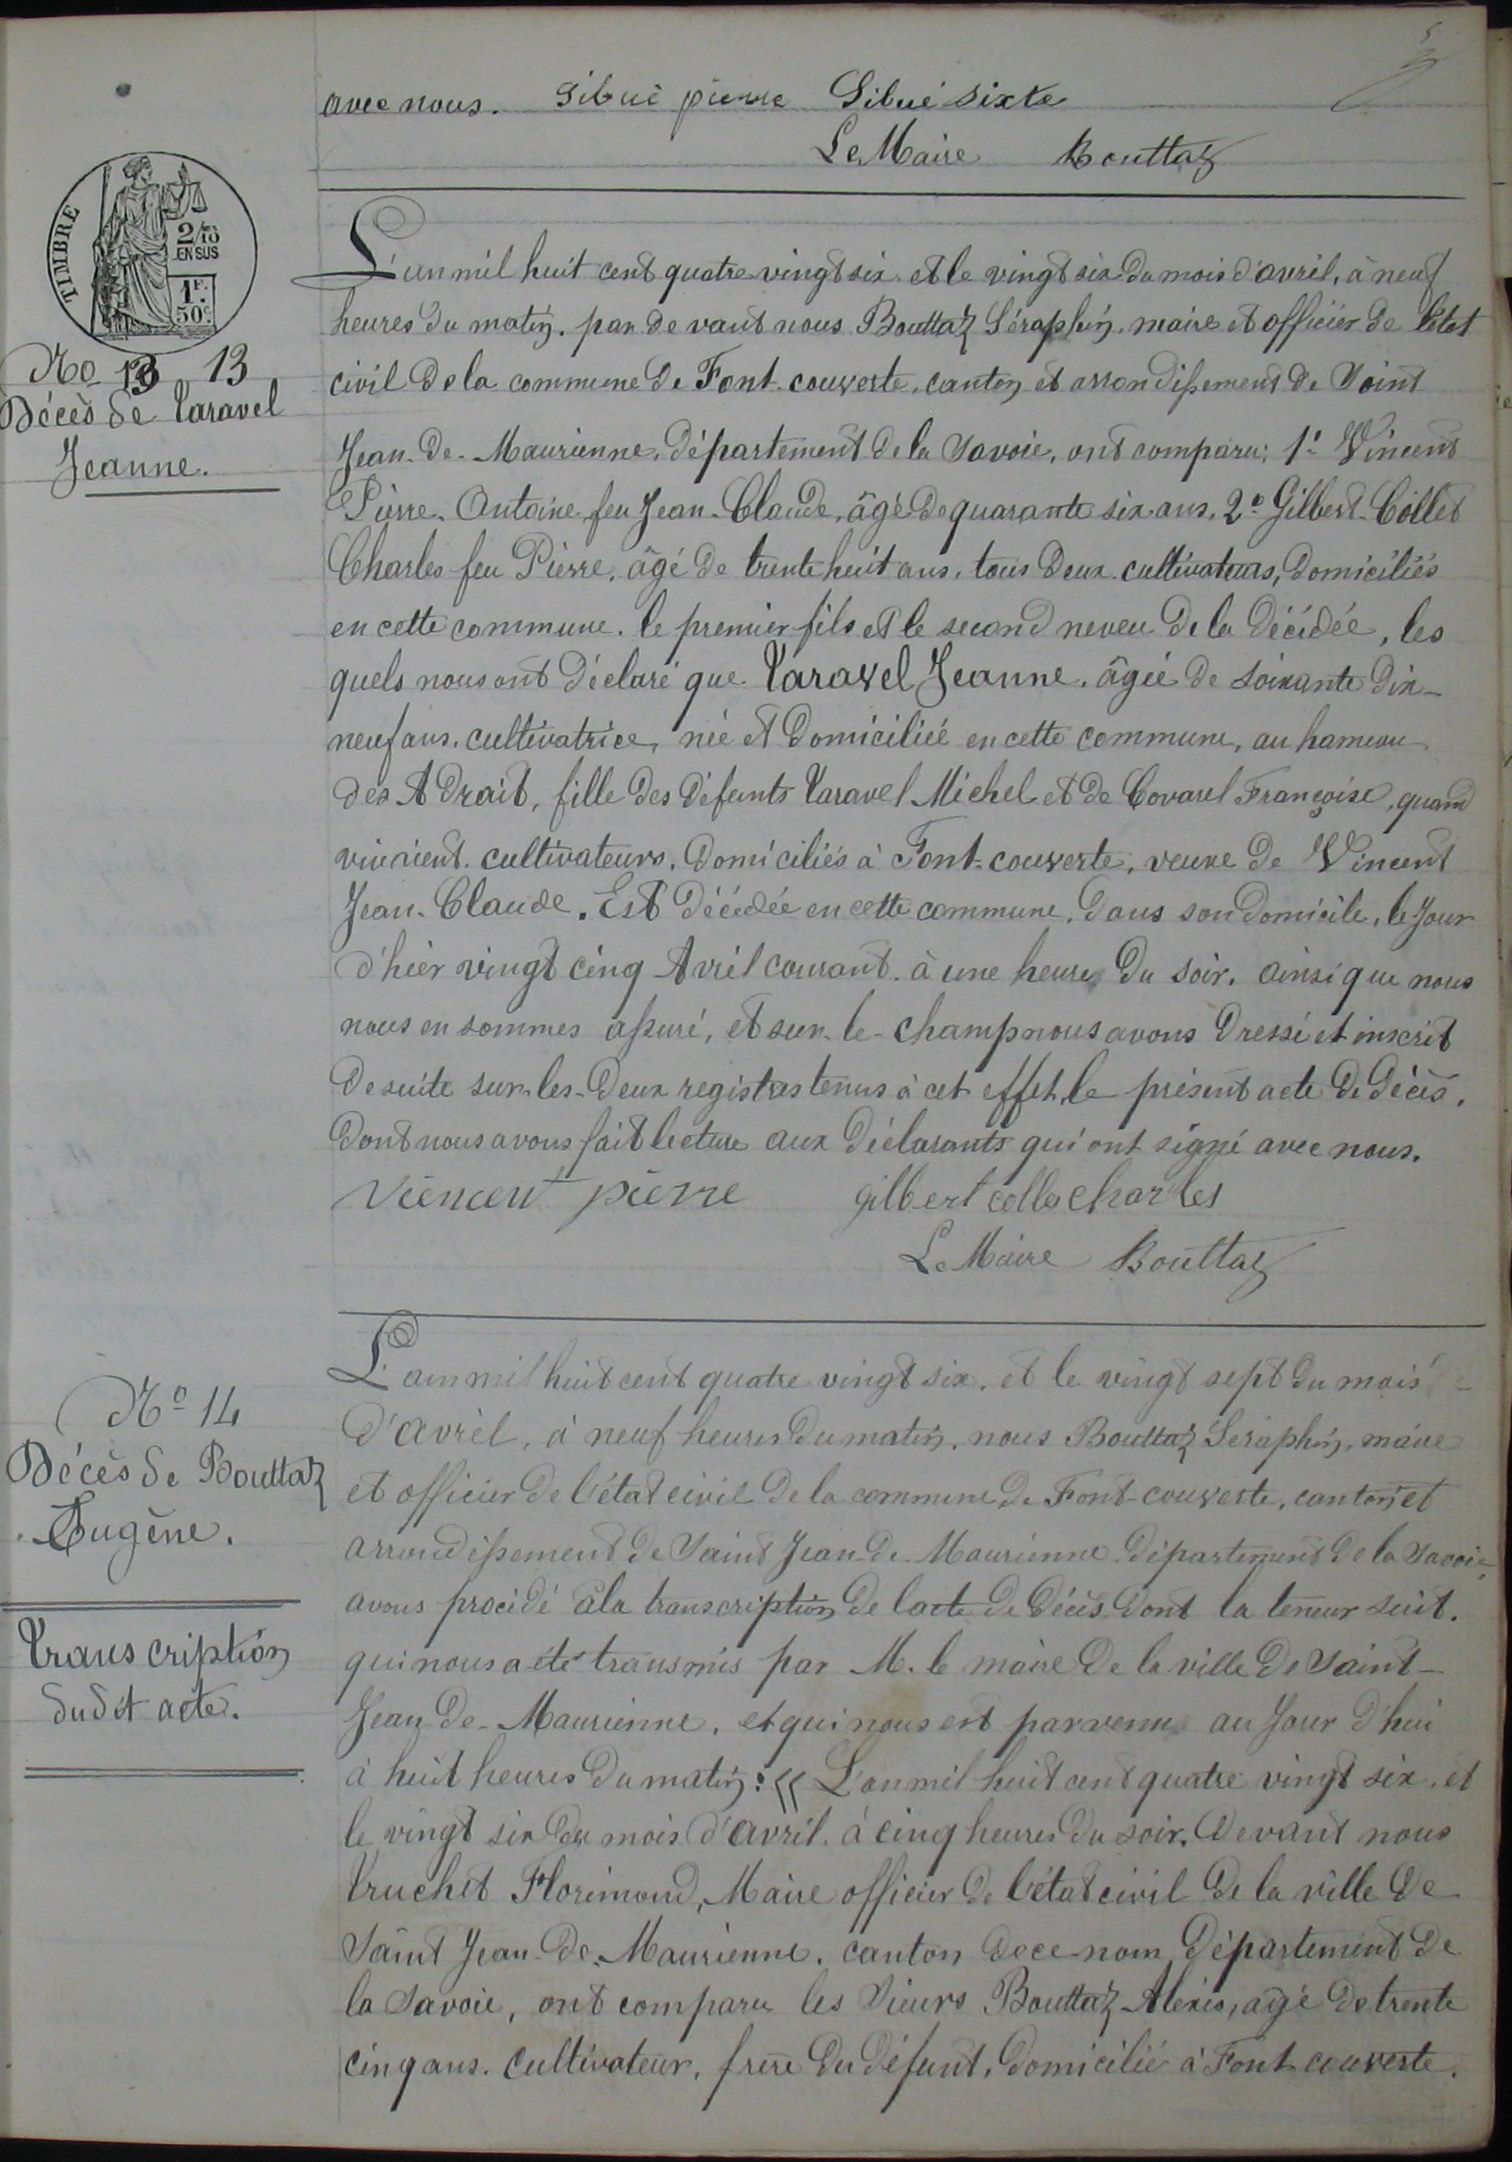 5
avec nous. Sibué pierre Sibué Sixte
Le Maire Bouttaz
TIMBRE
2/10
EN SUS
1F.
50c
No 13 13
Décès de Taravel
Jeanne.
L'an mil huit cent quatre vingt six et le vingt six du mois d'avril, à neuf
heures du matin. par de vant nous Bouttaz Séraphin, maire et officier de l'état
civil de la commune de Font-couverte, canton et arrondissement de Saint
Jean-de-Maurienne, département de la Savoie, ont comparu: 1° Vincent
Pierre-Antoine feu Jean-Claude, âgé de quarante six ans, 2° Gilbert-Collet
Charles feu Pierre, âgé de trente huit ans, tous deux cultivateurs, domiciliés
en cette commune. le premier fils et le second neveu de la décédée, les
quels nous ont déclaré que Taravel Jeanne, âgée de soixante dix-
neuf ans, cultivatrice, née et domiciliée en cette commune, au hameau
des Adroit, fille des défunts Taravel Michel et de Covarel Françoise, quand
vivaient cultivateurs, domiciliés à Font-couverte, veuve de Vincent
Jean-Claude. Est décédée en cette commune, dans son domicile, le jour
d'hier vingt cinq Avril courant à une heure du soir, ainsi que nous
nous en sommes assuré, et sur-le-champ nous avons dressé et inscrit
de suite sur les deux registres tenus à cet effet le présent acte de décès,
dont nous avons fait lecture aux déclarants qui ont signé avec nous.
Viencent pierre gilbert collet charles
Le Maire Bouttaz
No 14
Décès de Bouttaz
Eugène.
Transcription
dudit acte.
L'an mil huit cent quatre vingt six, et le vingt sept du mois
d'avril, à neuf heures du matin, nous Bouttaz Séraphin, maire
et officier de l'état civil de la commune de Font-couverte, canton et
arrondissement de Saint Jean-de-Maurienne département de la Savoie,
avons procédé à la transcription de l'acte de décès dont la teneur suit.
qui nous a été transmis par M. le maire de la ville de Saint-
Jean-de-Maurienne, et qui nous est parvenu au jour d'hui
à huit heures du matin: « L'an mil huit cent quatre vingt six, et
le vingt six du mois d'avril à cinq heures du soir, Devant nous
Truchet Florimond, Maire officier de l'état civil de la ville de
Saint Jean-de-Maurienne, canton de ce nom, département de
la Savoie, ont comparu les Sieurs Bouttaz Alexis, agé de trente
cinq ans, cultivateur, frère du défunt, domicilié à Font couverte.